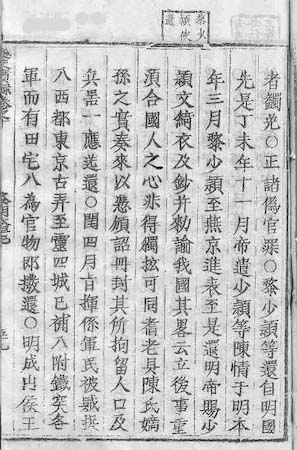 黎少
頴使
還
者蠲免○正諸僞官罪○黎少頴等還自明國
先是丁未年十一月帝遣少頴等陳情于明本
年三月黎少頴至燕京進表至是還明帝賜少
頴文綺衣及鈔并勑諭我國其畧云立後事重
湏合國人之心非得獨可同耆老具陳氏嫡
孫之實奏來以憑頒詔冊封其所拘留人口及
兵噐一應送還○閏四月旨揮係軍民被賊
入西都東京古弄至靈四城已補入附鐵突各
軍而有田宅入爲官物卽撥還○明成山侯王